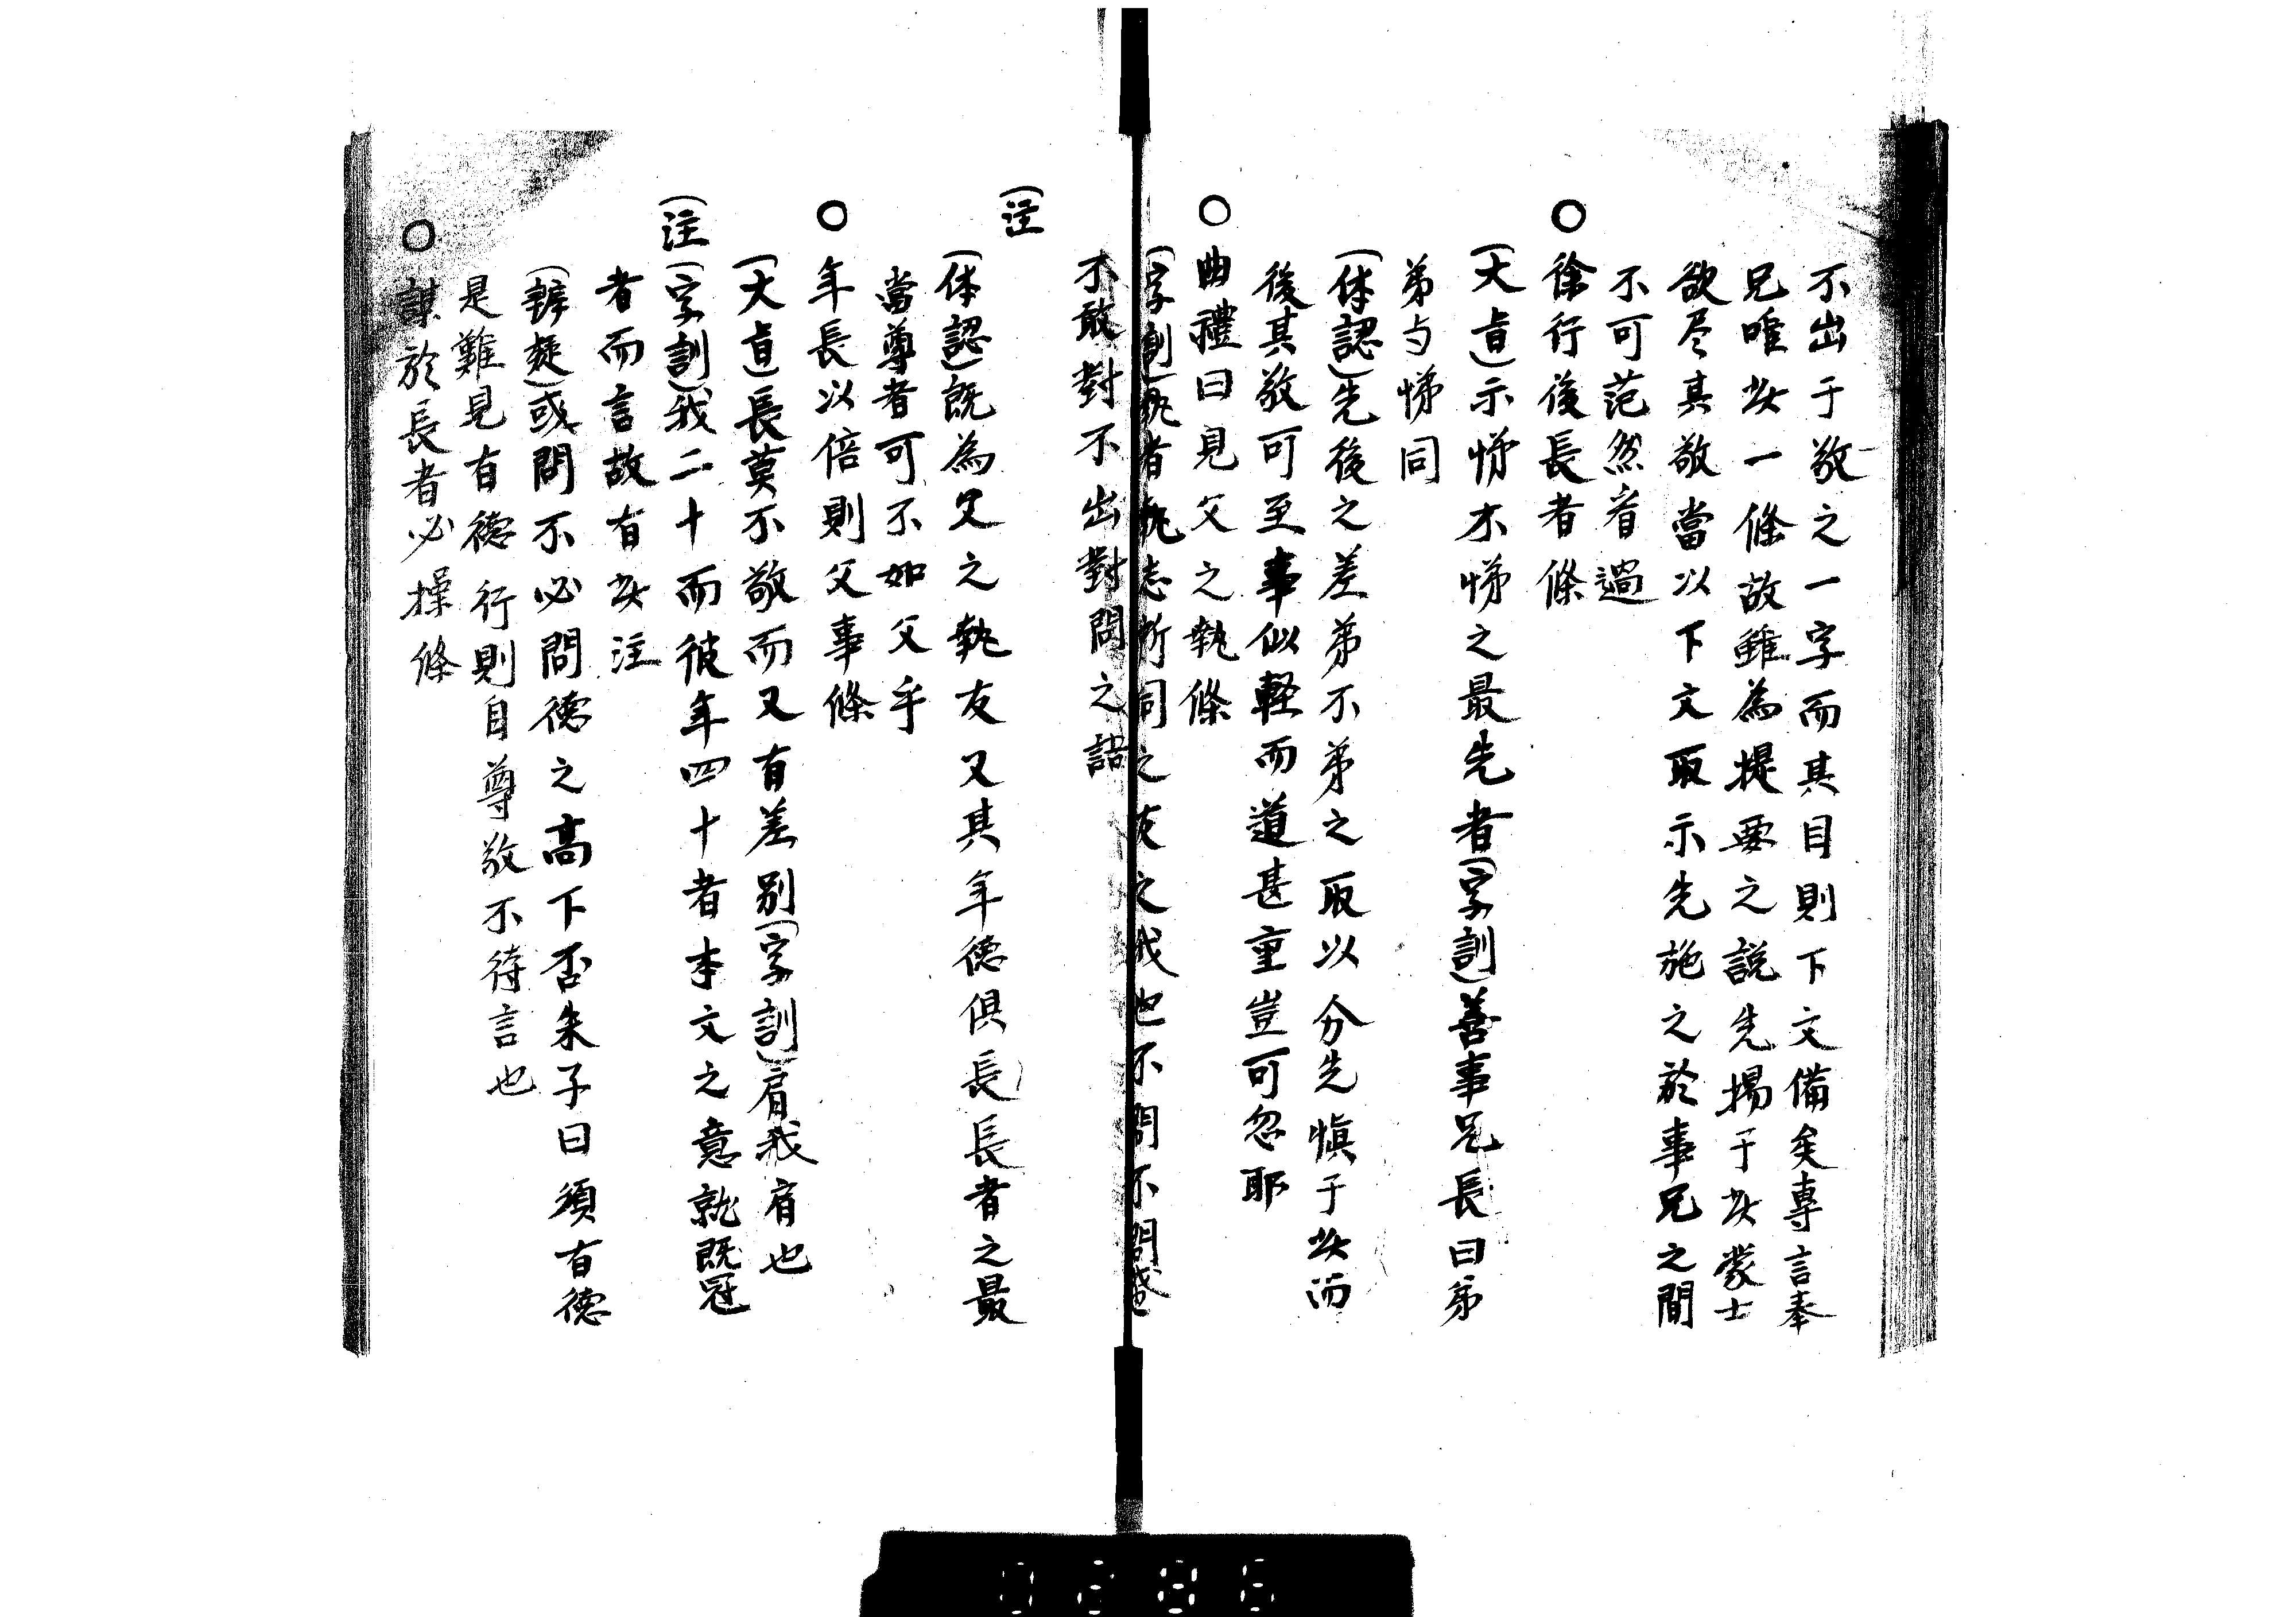 不出于敬之一字而其目則下文備矣專言奉
兄唯此一條故雖為提要之説先揚于此蒙士
欲尽其敬當以下文取示先施之於事兄之間
不可茫然看過
○徐行後長者條
(大旨)示悌不悌之最先者(字訓)善事兄長曰弟
弟与悌同
(体認)先後之差弟不弟之取以分先慎于此而
後其敬可至事似軽而道甚重豈可忽耶
○曲禮曰見父之執條
(字訓)執者執志所同之友之我也不問不問
不敢對對不出對問之語
(注)
(体認)既為父之執友又其年德俱長長者之最
當尊者可不如父乎
○年長以倍則父事條
(大旨)長莫不敬而又有差别(字訓)肩我肩也
(注)(字訓)我二十而彼年四十者本文之意就既冠
者而言故有此注
(辨疑)或問不必問德之高下否朱子曰須有德
是難見有德行則自尊敬不待言也
○謀於長者必操條